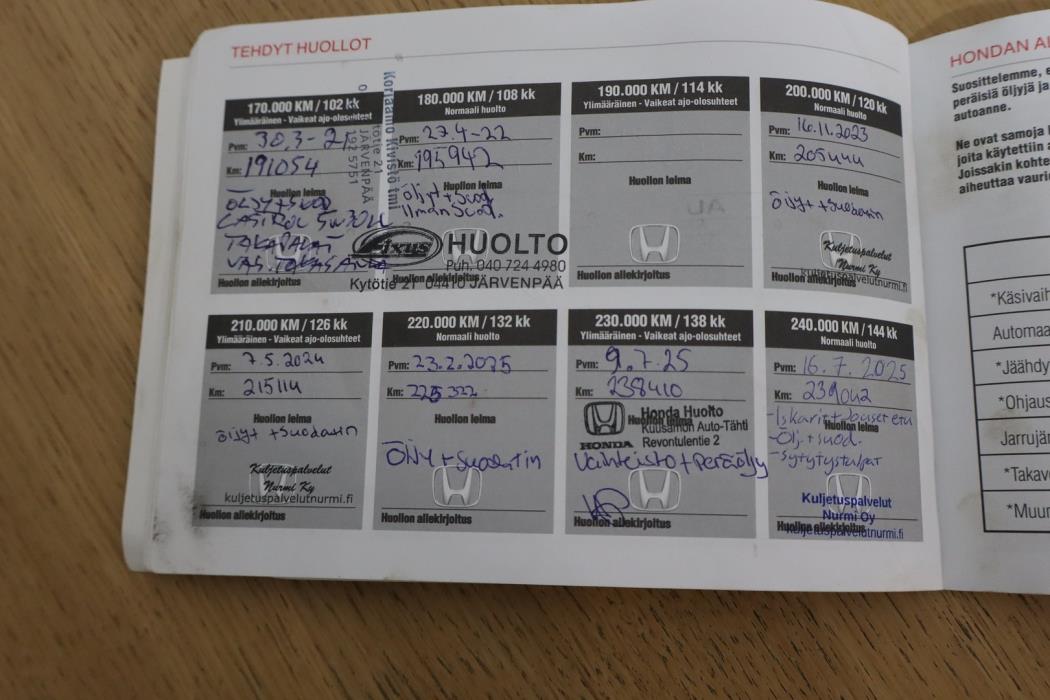 TEHDYT HUOLLOT
170.000 KM / 102 kk
Ylimääräinen - Vaikeat ajo-olosuhteet
Pvm: 30.3-21
Km: 191054
Huollon leima
ÖLJY+SUOD
CASTROL 5W30LL
TAKAPALAT
Huollon allekirjoitus
Korjaamo Kivistö tmi
JÄRVENPÄÄ
180.000 KM / 108 kk
Normaali huolto
Pvm: 27.4-22
Km: 195942
Huollon leima
Öljyt+Suod.
Ilman Suod.
Fixus HUOLTO
Puh. 040 724 4980
Kytötie 21 04410 JÄRVENPÄÄ
Huollon allekirjoitus
190.000 KM / 114 kk
Ylimääräinen - Vaikeat ajo-olosuhteet
Pvm:
Km:
Huollon leima
Huollon allekirjoitus
200.000 KM / 120 kk
Normaali huolto
Pvm: 16.11.2023
Km: 205444
Huollon leima
Öljyt +Suodatin
Kuljetuspalvelut
Nurmi Ky
kuljetuspalvelutnurmi.fi
Huollon allekirjoitus
210.000 KM / 126 kk
Ylimääräinen - Vaikeat ajo-olosuhteet
Pvm: 7.5.2024
Km: 215114
Huollon leima
Öljyt +Suodatin
Kuljetuspalvelut
Nurmi Ky
kuljetuspalvelutnurmi.fi
Huollon allekirjoitus
220.000 KM / 132 kk
Normaali huolto
Pvm: 23.2.2025
Km: 225322
Huollon leima
Öljy +Suodatin
Huollon allekirjoitus
230.000 KM / 138 kk
Ylimääräinen - Vaikeat ajo-olosuhteet
Pvm: 9.7.25
Km: 238410
Huollon leima
HONDA
Honda Huolto
Kuusamon Auto-Tähti
Revontulentie 2
Vaihteisto + Peräöljy
Huollon allekirjoitus
240.000 KM / 144 kk
Normaali huolto
Pvm: 16.7.2025
Km: 239042
Huollon leima
-Iskarit+Jouset etu
-Öljt+suod.
-Sytytystulpat
Kuljetuspalvelut
Nurmi Oy
kuljetuspalvelutnurmi.fi
Huollon allekirjoitus
HONDAN AI
Suosittelemme, e
peräisiä öljyjä ja
autoanne.
Ne ovat samoja
joita käytettiin a
Joissakin kohte
aiheuttaa vaurio
*Käsivaih
Automaa
*Jäähdy
*Ohjaus
Jarrujär
*Takav
*Muur